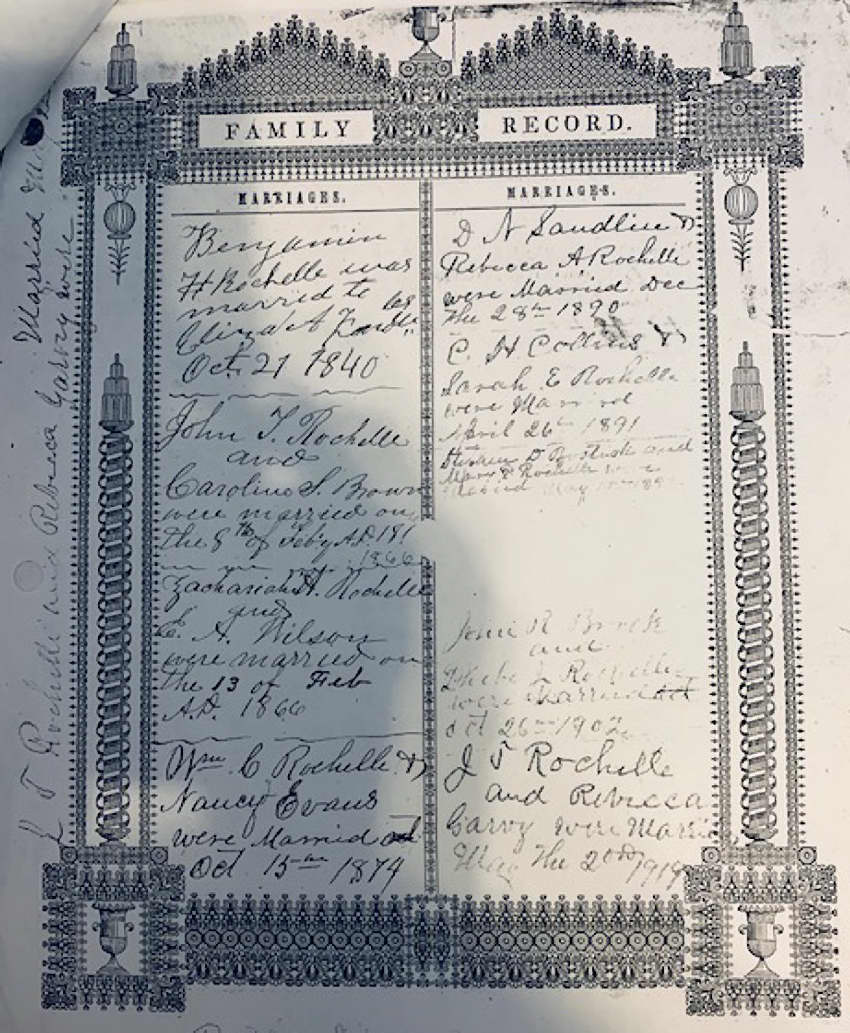 FAMILY RECORD.
MARRIAGES.
Benjamin
H Rochelle was
married to
Eliza A
Oct. 21 1840
John T. Rochelle
and
Caroline S. Brown
were married on
the 8th of Feb'y A.D. 181
1866
Zachariah H. Rochelle
and
E. A. Wilson
were married on
the 13 of Feb
A.D. 1866
Wm. C Rochelle &
Nancy Evans
were Married
Oct 15th 1879
MARRIAGES.
D N Sandlin &
Rebecca A Rochelle
were Married Dec
the 28th 1890
C. H Collins &
Sarah E Rochelle
were Married
April 26th 1891
and
Rochelle were
John R Brock
and
Phebe L Rochelle
were Married
oct 26th 1902
J T Rochelle
and Rebecca
Garvy were Married
May the 2nd 1919
J T Rochelle and Rebecca Garvy were
Married